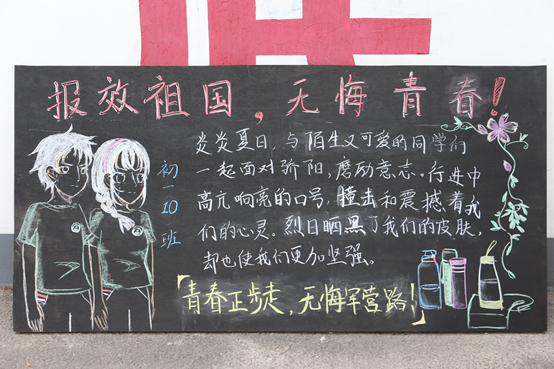 报效祖国，无悔青春！
炎炎夏日，与陌生又可爱的同学们
一起面对骄阳，磨励意志，行进中
高亢响亮的口号，撞击和震撼着我
们的心灵。烈日晒黑了我们的皮肤，
却也使我们更加坚强。
初一10班
「青春正步走，无悔军营路！」